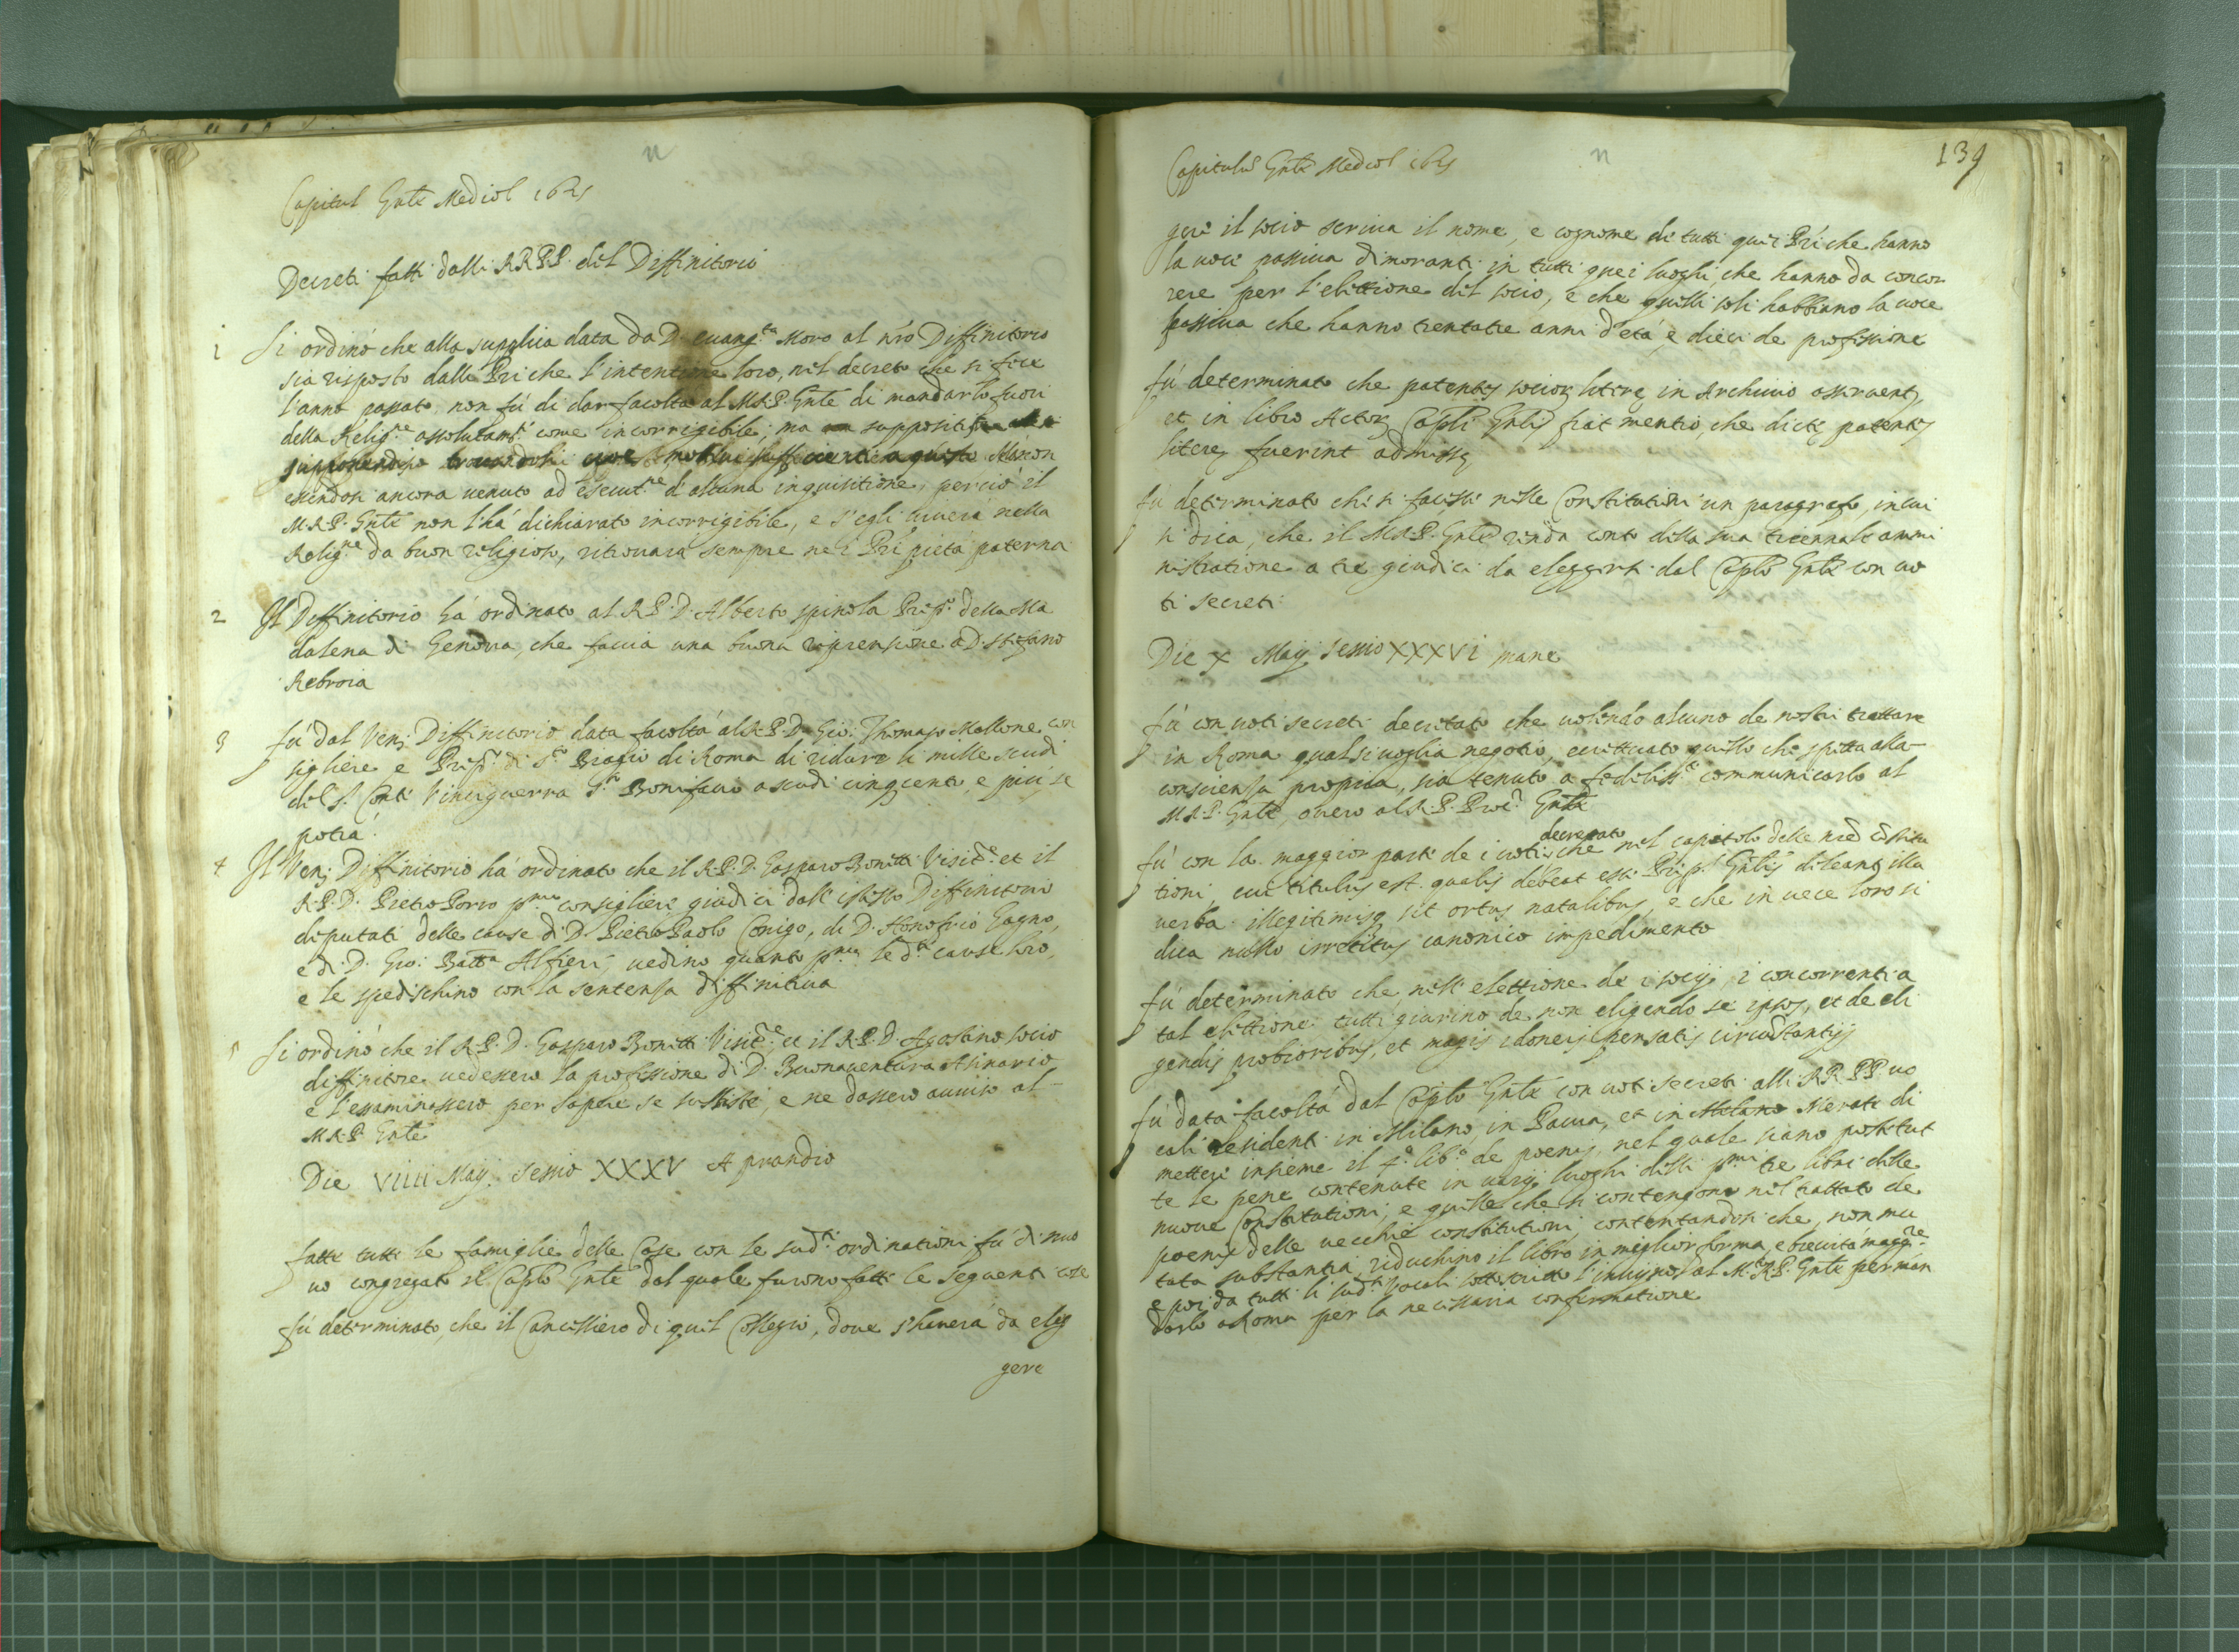 n
Capitul Gnle Mediol 1621
Decreti fatti dalli RR.PP. del Diffinitorio
1 Si ordinò che alla supplica data da D. euang.ta Moro al nro Diffinitorio
sia risposto dalli Pri che l'intentione loro, nel decreto che si fece
l'anno passato, non fù di dar facoltà al M.R.P. Gnle di mandarlo fuori
della Relig.ne assolutam.te come incorregibile, ma
supponendosi trouandosi motiui sufficienti a questo Mà non
essendosi ancora uenuto ad esecut.ne d'alcuna inquisitione, perciò il
M.R.P. Gnle non l'hà dichiarato incorrigibile, e s'egli uiuerà nella
Relig.ne da buon religioso, ritrouara sempre nei Pri pietà paterna
2 Il Diffinitorio hà ordinato al R.P.D. Alberto spinola Prep.to della Ma
dalena di Genova, che faccia una buona riprensione a D. stefano
Rebroia
3 fù dal Ven: Diffinitorio data facoltà al R.P.D. Gio: Thomaso Mallone con
sigliere e Prep.to di S.to Biagio di Roma di ridurre li mille scudi
del s.r Conte Vinciguerra S.to Bonifacio a scudi cinqcento, e più, se
potrà.
4 Il Ven: Diffinitorio hà ordinato che il R.P.D. Gasparo Bonetti Visit.re et il
R.P.D. Pietro Porro p.mo consigliere giudici dall'istesso Diffinitorio
diputati delle cause di D. Pietro Paolo Conigo, di D. Honofrio Gagno,
e di D. Gio: Batta Alfieri, uedino quanto p.ma le d.te cause loro,
e le spedischino con la sentenza diffinitiua
5 Si ordinò che il R.P.D. Gasparo Bonetti Visit.re et il R.P.D. Agostino socio
diffinitore uedessero la professione di D. Buonauentura Asinario
e l'essaminassero per sapere se sussiste, e ne dassero auuiso al
M.R.P. Gnle
Die VIIII Maij sessio XXXV A prandio
fatte tutte le famiglie delle Case con le sud.te ordinationi fù di nuo
uo congregato il Caplo Gnle dal quale furono fatte le seguenti cose
fù determinato, che il Cancelliero di quel Collegio, doue s'hauerà da eleg
gere
n
139
Capitulu Gnle Mediol 1621
gere il socio scriua il nome, e cognome di tutti quei Pri che hanno
la uoce passiua dimoranti in tutti quei luoghi, che hanno da concor
rere per l'elettione del socio, e che quelli soli habbiano la uoce
passiua che hanno trentatre anni d'età, e dieci de professione
fù determinato che patentes socior litere in Archiuio asseruent,
et in libro Actor Capli Gnlis fiat mentio, che dicte patentes
litere fuerint admisse
fù determinato che si facesse nelle Constitutioni un paragrafo, in cui
si dica, che il M.R.P. Gnle renda conto della sua triennale ammi
nistratione a tre giudici da eleggersi dal Caplo Gnle con uo
ti secreti
Die X Maij sessio XXXVI mane
fù con uoti secreti decretato che uolendo alcuno de nostri trattare
in Roma qualsiuoglia negotio, eccettuato quello che spetta alla
conscienza propria, sia tenuto a communicarlo al
M.R.P. Gnle, ouero al R.P. Proc.r Gnle
decretato
fù con la maggior parte de i uoti, che nel capitolo delle nre costitu
tioni, cui titulus est. qualis debeat esse Prep. Gnlis deleant illa
uerba illegitimisq sit ortus natalibus, e che in uece loro si
dica nullo irretitus canonico impedimento
fù determinato che nell'elettione de i socij, i concorrenti a
tal elettione tutti giurino de non eligendo se ipsos, et de eli
gendis probioribus, et magis idoneis pensatis circustantijs
fù data facoltà dal Caplo Gnle con uoti secreti alli RR.PP. uo
cali residenti in Milano, in Pauia, et in Milano Merate di
mettere insieme il 4.o lib.o de poenis, nel quale siano posti tut
te le pene contenute in uarij luoghi delli p.mi tre libri delle
nuoue Constitutioni, e quelle che si contengono nel trattato de
poenis delle uecchie constitutioni, contentandosi che, non mu
tata substantia, riduchino il libro in miglior forma, e breuità magg.re
e poi da tutti li sud.ti Vocali sottoscritto l'inuijno al M.R.P. Gnle per man
darlo a Roma per la necessaria confermatione